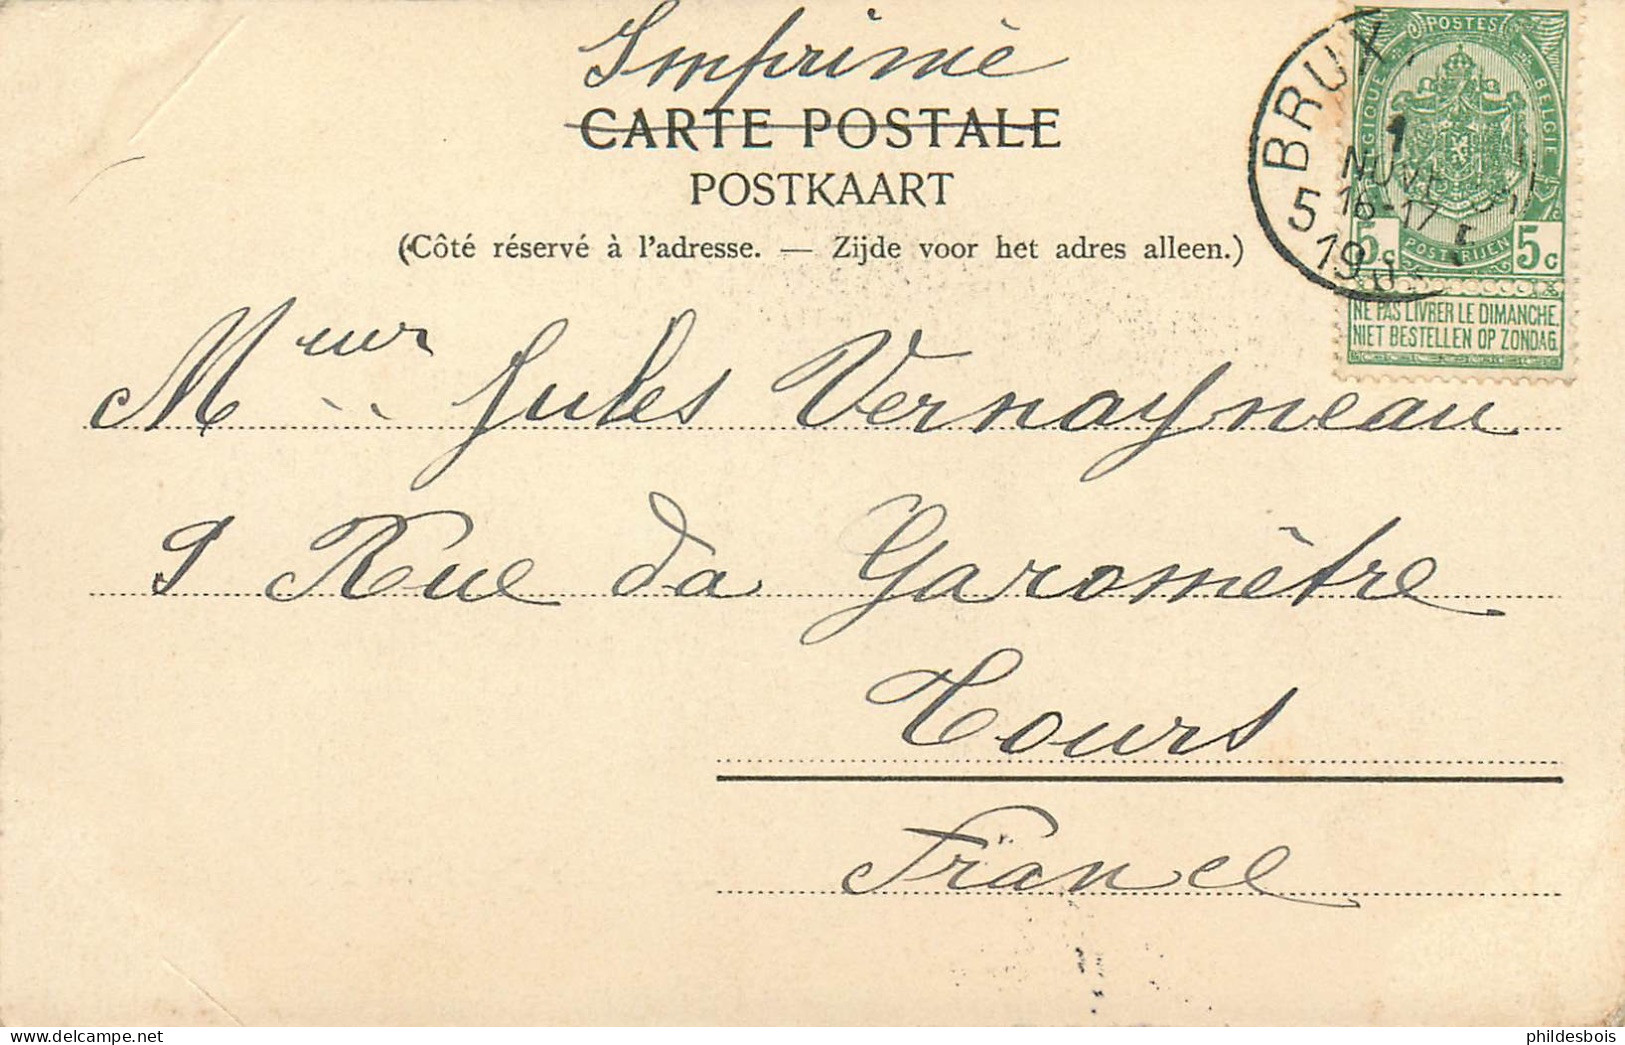 Imprimé
CARTE POSTALE
POSTKAART
(Côté réservé à l'adresse. — Zijde voor het adres alleen.)
BRUX
5
1
NOVE
16-17
19
POSTES
BELGIQUE
BELGIE
POSTERIJEN
5c 5c
NE PAS LIVRER LE DIMANCHE
NIET BESTELLEN OP ZONDAG
Meur Jules Vernayneau
9 Rue da Garomètre
Tours
France
phildesbois